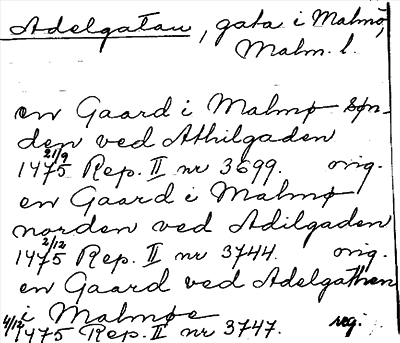 Adelgatan, gata i Malmö,
Malm. l.
en Gaard i Malmø søn-
den ved Athilgaden
21/9 1475 Rep. II nr 3699. orig.
en Gaard i Malmø
norden ved Adilgaden
2/12 1475 Rep. II nr 3744. orig.
en Gaard ved Adelgathen
i Malmøe
4/12 1475 Rep. II nr 3747. reg.